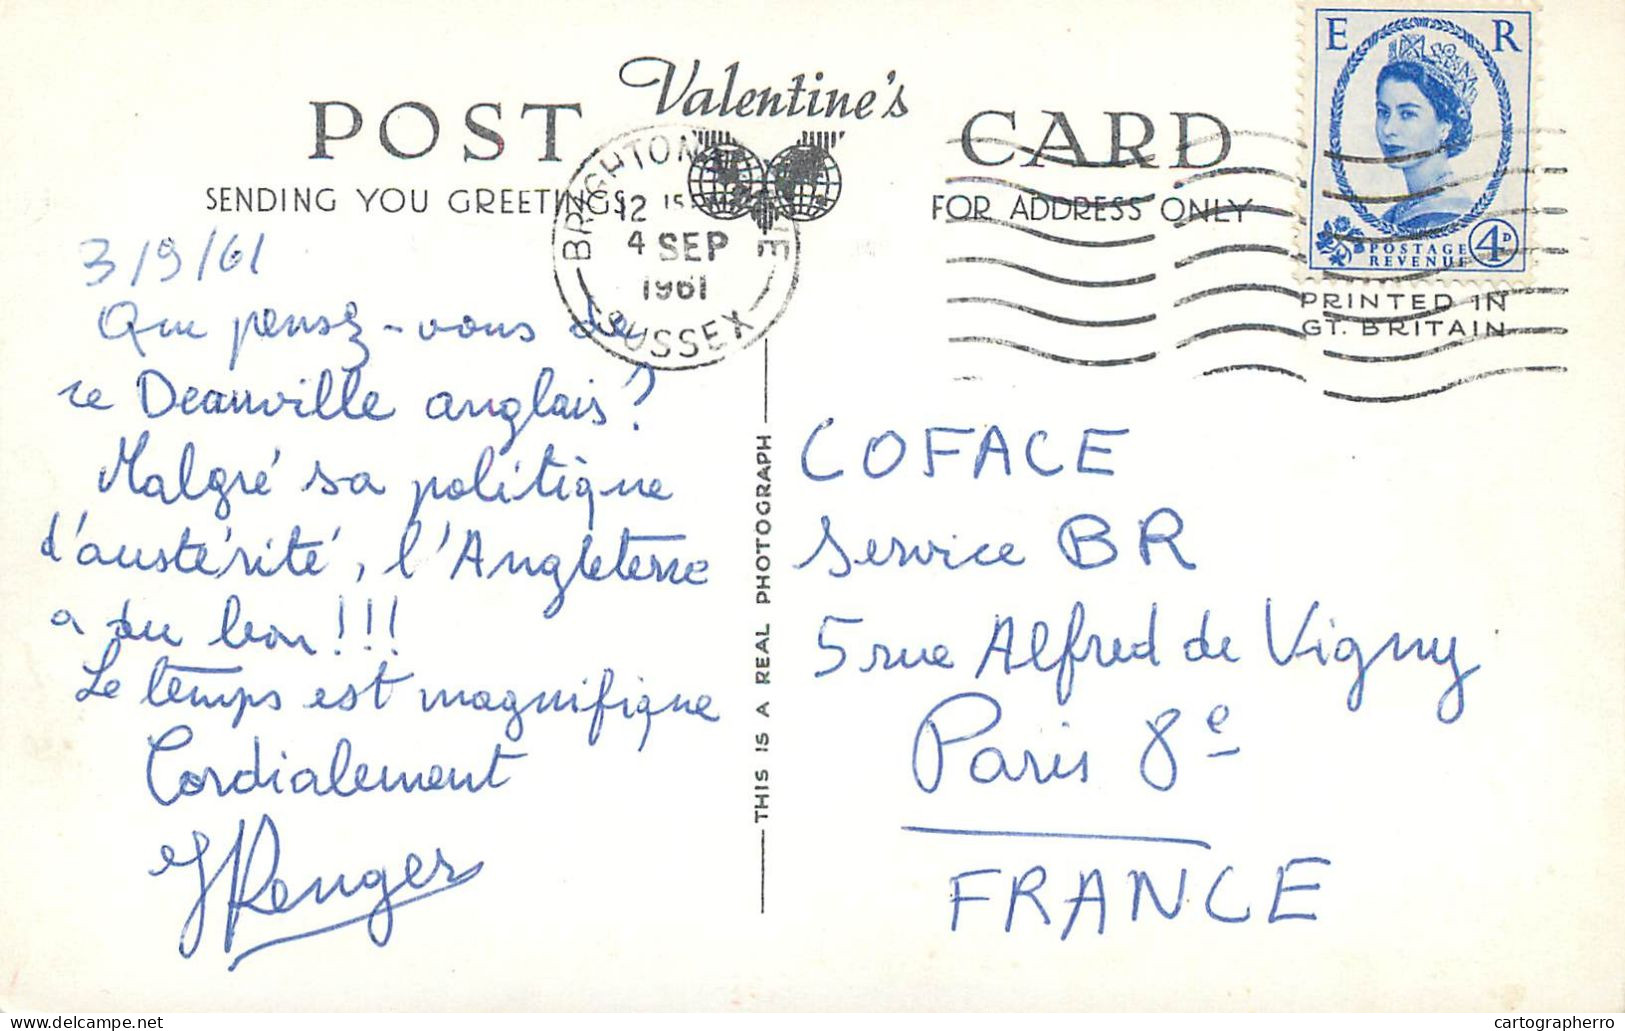 Valentine's
POST CARD
SENDING YOU GREETINGS
FOR ADDRESS ONLY
E R
POSTAGE
REVENUE
4D
PRINTED IN
GT. BRITAIN
BRIGHTON
12 15
4 SEP
1961
SUSSEX
3/9/61
Que pensez-vous de
ce Deauville anglais?
Malgré sa politique
d'austérité, l'Angleterre
a du bon!!!
Le temps est magnifique
Cordialement
THIS IS A REAL PHOTOGRAPH
COFACE
Service BR
5 rue Alfred de Vigny
Paris 8e
FRANCE
delcampe.net
cartographerro